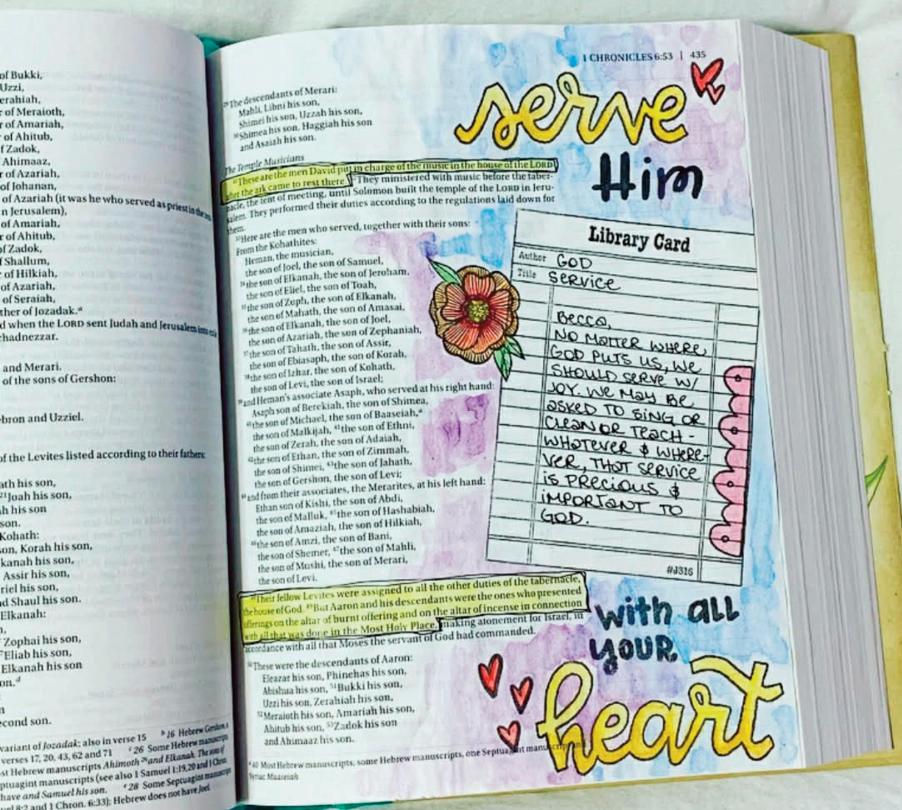 of Bukki,
Uzzi,
erahiah,
r of Meraioth,
r of Amariah,
r of Ahitub,
f Zadok,
Ahimaaz,
r of Azariah,
of Johanan,
of Azariah (it was he who served as priest in the
n Jerusalem),
of Amariah,
r of Ahitub,
of Zadok,
f Shallum,
r of Hilkiah,
of Azariah,
of Seraiah,
ther of Jozadak.ᵃ
d when the LORD sent Judah and Jerusalem into
chadnezzar.
and Merari.
of the sons of Gershon:
bron and Uzziel.
of the Levites listed according to their fathers:
ath his son,
²¹Joah his son,
ah his son
son.
Kohath:
son, Korah his son,
kanah his son,
Assir his son,
riel his son,
nd Shaul his son.
Elkanah:
Zophai his son,
²⁷Eliab his son,
Elkanah his son
on.ᵈ
econd son.
variant of Jozadak; also in verse 15 ᵇ 16 Hebrew Gershom,
verses 17, 20, 43, 62 and 71 ᶜ 26 Some Hebrew manuscripts
st Hebrew manuscripts Ahimoth ²⁶and Elkanah. The sons of
ptuagint manuscripts (see also 1 Samuel 1:19,20 and 1 Chron.
have and Samuel his son. ᵉ 28 Some Septuagint manuscripts
uel 8:2 and 1 Chron. 6:33); Hebrew does not have Joel
1 CHRONICLES 6:53 | 435
serve
Him
²⁹The descendants of Merari:
Mahli, Libni his son,
Shimei his son, Uzzah his son,
³⁰Shimea his son, Haggiah his son
and Asaiah his son.
The Temple Musicians
³¹These are the men David put in charge of the music in the house of the LORD
after the ark came to rest there. ³²They ministered with music before the taber-
nacle, the tent of meeting, until Solomon built the temple of the LORD in Jeru-
salem. They performed their duties according to the regulations laid down for
them.
³³Here are the men who served, together with their sons:
From the Kohathites:
Heman, the musician,
the son of Joel, the son of Samuel,
³⁴the son of Elkanah, the son of Jeroham,
the son of Eliel, the son of Toah,
³⁵the son of Zuph, the son of Elkanah,
the son of Mahath, the son of Amasai,
³⁶the son of Elkanah, the son of Joel,
the son of Azariah, the son of Zephaniah,
³⁷the son of Tahath, the son of Assir,
the son of Ebiasaph, the son of Korah,
³⁸the son of Izhar, the son of Kohath,
the son of Levi, the son of Israel;
³⁹and Heman's associate Asaph, who served at his right hand:
Asaph son of Berekiah, the son of Shimea,
⁴⁰the son of Michael, the son of Baaseiah,ᵃ
the son of Malkijah, ⁴¹the son of Ethni,
the son of Zerah, the son of Adaiah,
⁴²the son of Ethan, the son of Zimmah,
the son of Shimei, ⁴³the son of Jahath,
the son of Gershon, the son of Levi;
⁴⁴and from their associates, the Merarites, at his left hand:
Ethan son of Kishi, the son of Abdi,
the son of Malluk, ⁴⁵the son of Hashabiah,
the son of Amaziah, the son of Hilkiah,
⁴⁶the son of Amzi, the son of Bani,
the son of Shemer, ⁴⁷the son of Mahli,
the son of Mushi, the son of Merari,
the son of Levi.
⁴⁸Their fellow Levites were assigned to all the other duties of the tabernacle,
the house of God. ⁴⁹But Aaron and his descendants were the ones who presented
offerings on the altar of burnt offering and on the altar of incense in connection
with all that was done in the Most Holy Place, making atonement for Israel, in
accordance with all that Moses the servant of God had commanded.
⁵⁰These were the descendants of Aaron:
Eleazar his son, Phinehas his son,
Abishua his son, ⁵¹Bukki his son,
Uzzi his son, Zerahiah his son,
⁵²Meraioth his son, Amariah his son,
Ahitub his son, ⁵³Zadok his son
and Ahimaaz his son.
ᵃ 40 Most Hebrew manuscripts, some Hebrew manuscripts, one Septuagint manuscript and
Syriac Maaseiah
Library Card
Author GOD
Title SERVICE
BECCA,
NO MATTER WHERE
GOD PUTS US, WE
SHOULD SERVE W/
JOY. WE MAY BE
ASKED TO SING OR
CLEAN OR TEACH -
WHATEVER & WHERE-
VER, THAT SERVICE
IS PRECIOUS &
IMPORTANT TO
GOD.
#J316
with all
your
heart